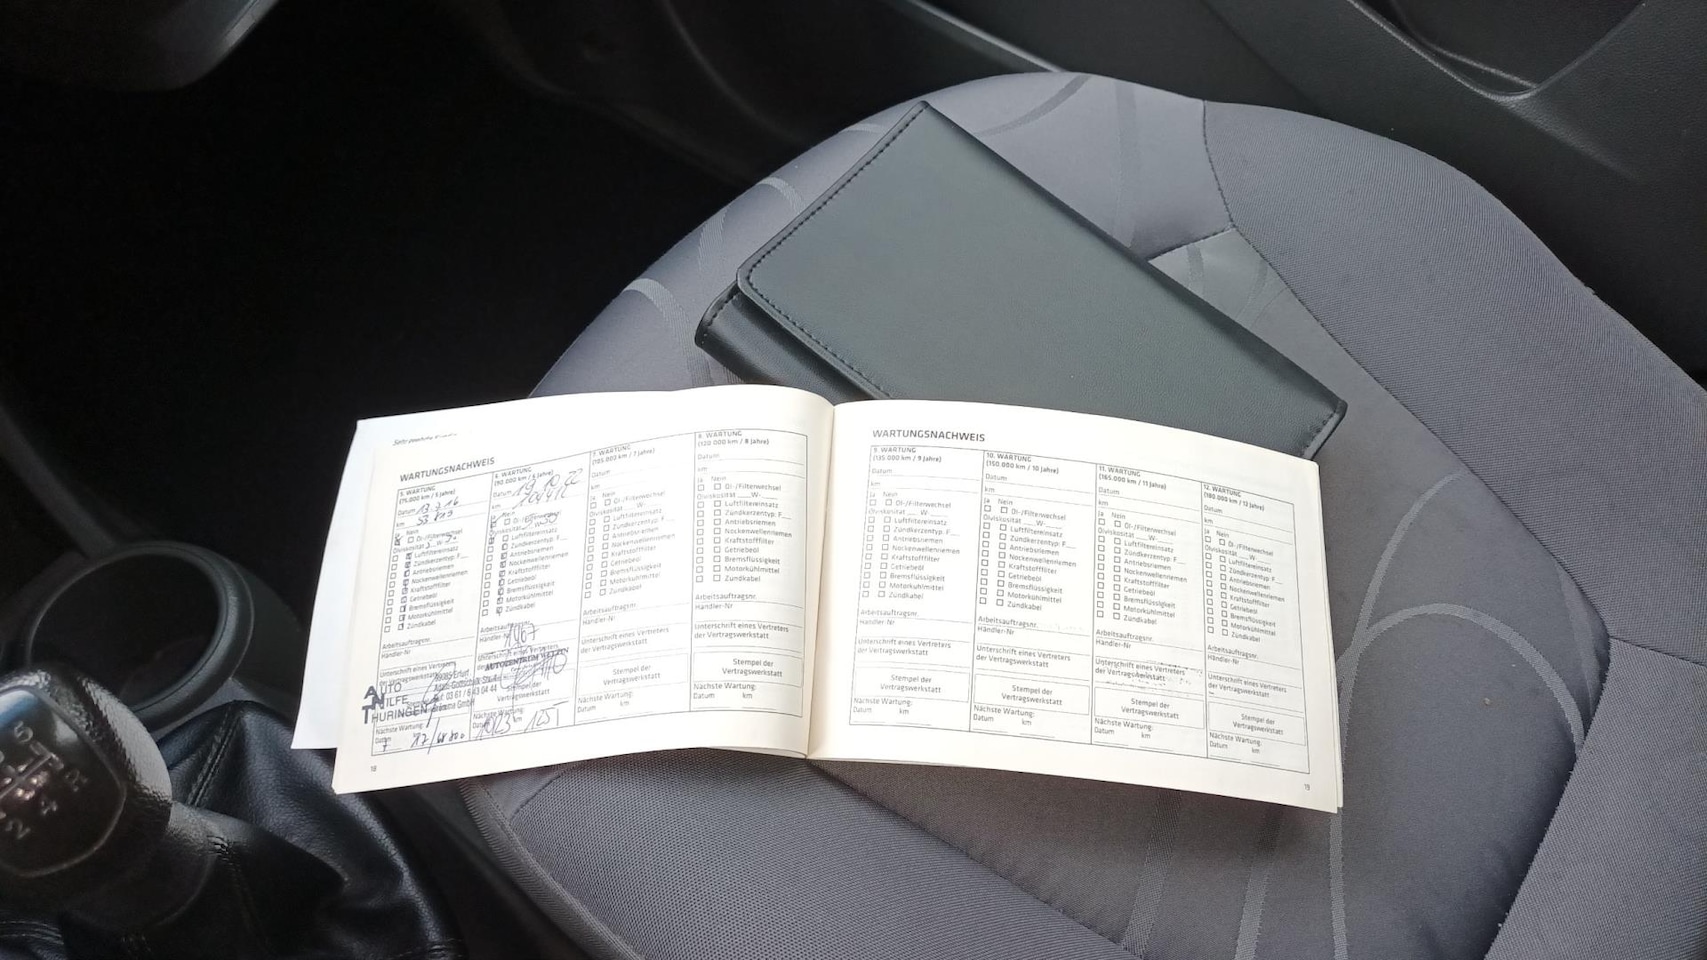 WARTUNGSNACHWEIS
5. WARTUNG
(75.000 km / 5 Jahre)
Datum 13.7.16
km 53 873
Ja Nein
Öl-/Filterwechsel
Ölviskosität W-
Luftfiltereinsatz
Zündkerzentyp: F
Antriebsriemen
Nockenwellenriemen
Kraftstofffilter
Getriebeöl
Bremsflüssigkeit
Motorkühlmittel
Zündkabel
Arbeitsauftragsnr.
Händler-Nr
Unterschrift eines Vertreters
AUTO
HILFE
THÜRINGEN
99085 Erfurt
Tel. 03 61 / 6 43 04 44
GmbH
Nächste Wartung:
Datum km
6. WARTUNG
(90.000 km / 6 Jahre)
Datum 19.10.22
km
Öl-/Filterwechsel
Luftfiltereinsatz
Zündkerzentyp: F
Antriebsriemen
Nockenwellenriemen
Kraftstofffilter
Getriebeöl
Bremsflüssigkeit
Motorkühlmittel
Zündkabel
Arbeitsauftragsnr.
Händler-Nr
Unterschrift eines Vertreters
AUTOCENTRUM
Vertragswerkstatt
Nächste Wartung:
7. WARTUNG
(105.000 km / 7 Jahre)
Datum
km
Ja Nein
Öl-/Filterwechsel
Ölviskosität W-
Luftfiltereinsatz
Zündkerzentyp: F
Antriebsriemen
Nockenwellenriemen
Kraftstofffilter
Getriebeöl
Bremsflüssigkeit
Motorkühlmittel
Zündkabel
Arbeitsauftragsnr.
Händler-Nr
Unterschrift eines Vertreters
der Vertragswerkstatt
Stempel der
Vertragswerkstatt
Nächste Wartung:
Datum km
8. WARTUNG
(120.000 km / 8 Jahre)
Datum
km
Ja Nein
Öl-/Filterwechsel
Ölviskosität W-
Luftfiltereinsatz
Zündkerzentyp: F
Antriebsriemen
Nockenwellenriemen
Kraftstofffilter
Getriebeöl
Bremsflüssigkeit
Motorkühlmittel
Zündkabel
Arbeitsauftragsnr.
Händler-Nr
Unterschrift eines Vertreters
der Vertragswerkstatt
Stempel der
Vertragswerkstatt
Nächste Wartung:
Datum km
18
WARTUNGSNACHWEIS
9. WARTUNG
(135.000 km / 9 Jahre)
Datum
km
Ja Nein
Öl-/Filterwechsel
Ölviskosität W-
Luftfiltereinsatz
Zündkerzentyp: F
Antriebsriemen
Nockenwellenriemen
Kraftstofffilter
Getriebeöl
Bremsflüssigkeit
Motorkühlmittel
Zündkabel
Arbeitsauftragsnr.
Händler-Nr
Unterschrift eines Vertreters
der Vertragswerkstatt
Stempel der
Vertragswerkstatt
Nächste Wartung:
Datum km
10. WARTUNG
(150.000 km / 10 Jahre)
Datum
km
Ja Nein
Öl-/Filterwechsel
Ölviskosität W-
Luftfiltereinsatz
Zündkerzentyp: F
Antriebsriemen
Nockenwellenriemen
Kraftstofffilter
Getriebeöl
Bremsflüssigkeit
Motorkühlmittel
Zündkabel
Arbeitsauftragsnr.
Händler-Nr
Unterschrift eines Vertreters
der Vertragswerkstatt
Stempel der
Vertragswerkstatt
Nächste Wartung:
Datum km
11. WARTUNG
(165.000 km / 11 Jahre)
Datum
km
Ja Nein
Öl-/Filterwechsel
Ölviskosität W-
Luftfiltereinsatz
Zündkerzentyp: F
Antriebsriemen
Nockenwellenriemen
Kraftstofffilter
Getriebeöl
Bremsflüssigkeit
Motorkühlmittel
Zündkabel
Arbeitsauftragsnr.
Händler-Nr
Unterschrift eines Vertreters
der Vertragswerkstatt
Stempel der
Vertragswerkstatt
Nächste Wartung:
Datum km
12. WARTUNG
(180.000 km / 12 Jahre)
Datum
km
Ja Nein
Öl-/Filterwechsel
Ölviskosität W-
Luftfiltereinsatz
Zündkerzentyp: F
Antriebsriemen
Nockenwellenriemen
Kraftstofffilter
Getriebeöl
Bremsflüssigkeit
Motorkühlmittel
Zündkabel
Arbeitsauftragsnr.
Händler-Nr
Unterschrift eines Vertreters
der Vertragswerkstatt
Stempel der
Vertragswerkstatt
Nächste Wartung:
Datum km
19
5
2 4 R